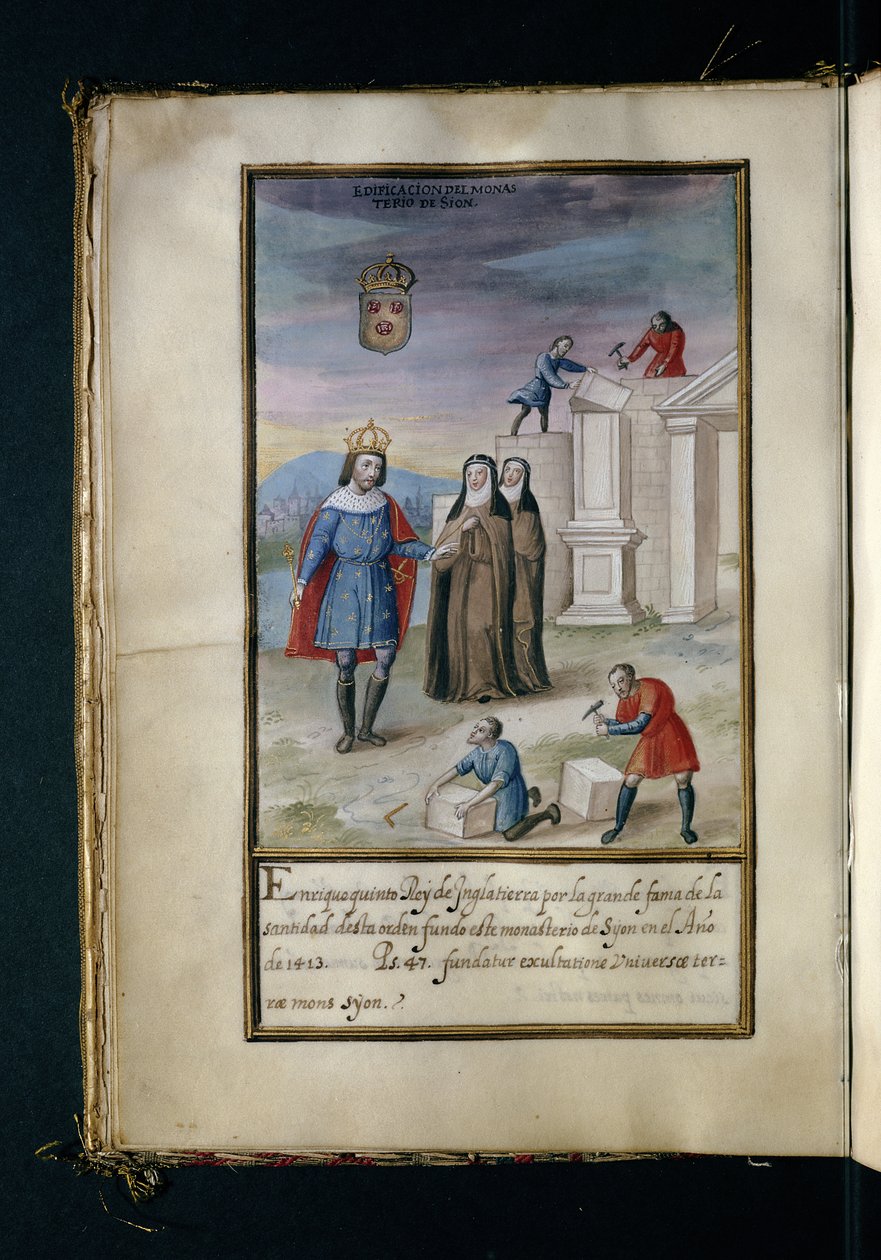 EDIFICACION DEL MONAS
TERIO DE SION.
Enrique quinto Rey de Jnglatierra por la grande fama de la
santidad desta orden fundo este monasterio de Syon en el Año
de 1413. Ps. 47. fundatur exultatione Vniversæ ter-
ræ mons sÿon.